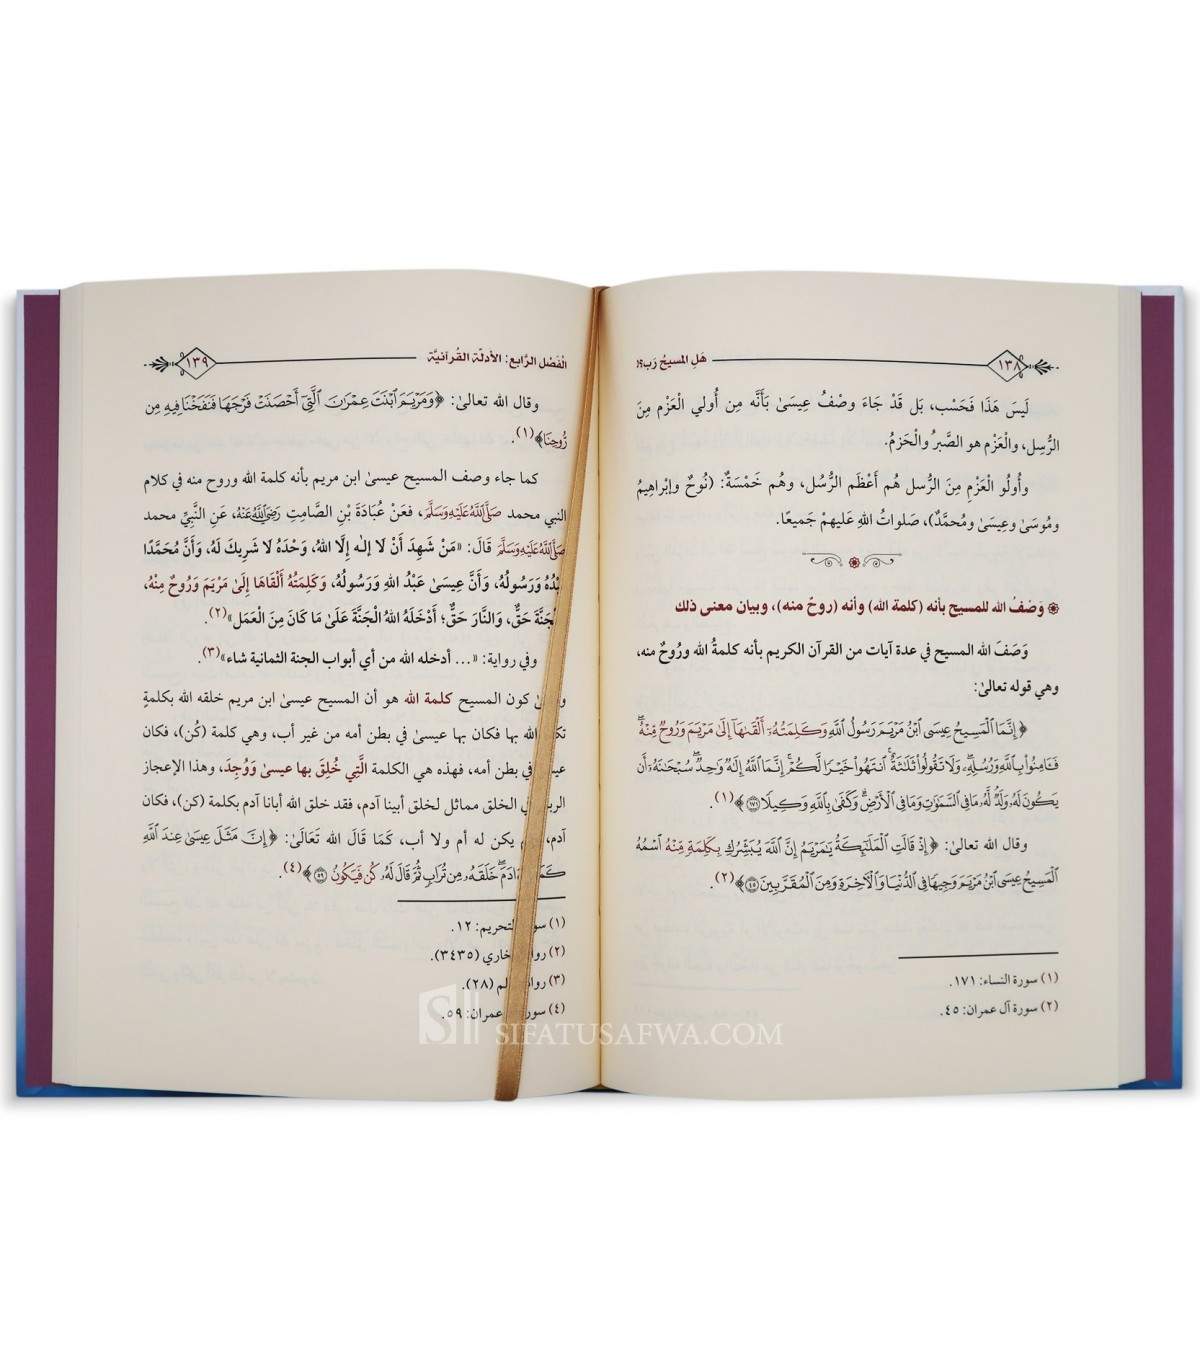 هَلِ المَسيحُ رَب؟!
١٣٨
لَيسَ هَذَا فَحَسْب، بَل قَدْ جَاءَ وصْفُ عِيسَىٰ بَأنَّه مِن أُولي الْعَزْم مِنَ
الرُّسِل، والْعَزْم هو الصَّبرُ والْحَزمُ.
وأُولُو الْعَزْمِ مِنَ الرُّسل هُم أعْظَم الرُّسُل، وهُم خَمْسَةٌ: (نُوحٌ وإبْراهِيمُ
ومُوسَىٰ وعِيسَىٰ ومُحمَّدٌ)، صَلواتُ اللهِ عَليهمْ جَميعًا.
وَصْفُ الله للمسيح بأنه (كلمة الله) وأنه (روحٌ منه)، وبيان معنى ذلك
وَصَفَ الله المسيح في عدة آيات من القرآن الكريم بأنه كلمةُ الله ورُوحٌ منه،
وهي قوله تعالىٰ:
﴿إِنَّمَا ٱلْمَسِيحُ عِيسَى ٱبْنُ مَرْيَمَ رَسُولُ ٱللَّهِ وَكَلِمَتُهُۥٓ أَلْقَىٰهَآ إِلَىٰ مَرْيَمَ وَرُوحٌ مِّنْهُ ۖ
فَـَٔامِنُوا۟ بِٱللَّهِ وَرُسُلِهِۦ ۖ وَلَا تَقُولُوا۟ ثَلَـٰثَةٌ ۚ ٱنتَهُوا۟ خَيْرًا لَّكُمْ ۚ إِنَّمَا ٱللَّهُ إِلَـٰهٌ وَٰحِدٌ ۖ سُبْحَـٰنَهُۥٓ أَن
يَكُونَ لَهُۥ وَلَدٌ ۘ لَّهُۥ مَا فِى ٱلسَّمَـٰوَٰتِ وَمَا فِى ٱلْأَرْضِ ۗ وَكَفَىٰ بِٱللَّهِ وَكِيلًا ١٧١﴾(١).
وقال الله تعالىٰ: ﴿إِذْ قَالَتِ ٱلْمَلَـٰٓئِكَةُ يَـٰمَرْيَمُ إِنَّ ٱللَّهَ يُبَشِّرُكِ بِكَلِمَةٍ مِّنْهُ ٱسْمُهُ
ٱلْمَسِيحُ عِيسَى ٱبْنُ مَرْيَمَ وَجِيهًا فِى ٱلدُّنْيَا وَٱلْـَٔاخِرَةِ وَمِنَ ٱلْمُقَرَّبِينَ ٤٥﴾(٢).
(١) سورة النساء: ١٧١.
(٢) سورة آل عمران: ٤٥.
الْفَصْل الرَّابع: الأدلّة القُرآنيَّة
١٣٩
وقال الله تعالىٰ: ﴿وَمَرْيَمَ ٱبْنَتَ عِمْرَٰنَ ٱلَّتِىٓ أَحْصَنَتْ فَرْجَهَا فَنَفَخْنَا فِيهِ مِن
رُّوحِنَا﴾(١).
كما جاء وصف المسيح عيسىٰ ابن مريم بأنه كلمة الله وروح منه في كلام
النبي محمد صَلَّىٰ اللَّهُ عَلَيْهِ وَسَلَّمَ، فعَنْ عُبَادَةَ بْنِ الصَّامِتِ رَضِيَ اللَّهُ عَنْهُ، عَنِ النَّبِيِّ محمد
صَلَّىٰ اللَّهُ عَلَيْهِ وَسَلَّمَ قَالَ: «مَنْ شَهِدَ أَنْ لا إلـٰه إِلَّا اللهُ، وَحْدَهُ لا شَرِيكَ لَهُ، وَأَنَّ مُحَمَّدًا
بْدُهُ وَرَسُولُهُ، وَأَنَّ عِيسَىٰ عَبْدُ اللهِ وَرَسُولُهُ، وَكَلِمَتُهُ أَلْقَاهَا إِلَىٰ مَرْيَمَ وَرُوحٌ مِنْهُ،
لْجَنَّةَ حَقٌّ، وَالنَّارَ حَقٌّ؛ أَدْخَلَهُ اللهُ الْجَنَّةَ عَلَىٰ مَا كَانَ مِنَ الْعَمَل»(٢).
وفي رواية: «... أدخله الله من أي أبواب الجنة الثمانية شاء»(٣).
كون المسيح كلمة الله هو أن المسيح عيسىٰ ابن مريم خلقه الله بكلمةٍ
الله بها فكان بها عيسىٰ في بطن أمه من غير أب، وهي كلمة (كُن)، فكان
في بطن أمه، فهذه هي الكلمة الَّتِي خُلِقَ بها عيسىٰ وَوُجِدَ، وهذا الإعجاز
الخلق مماثل لخلق أبينا آدم، فقد خلق الله أبانا آدم بكلمة (كن)، فكان
آدم، يكن له أم ولا أب، كَمَا قَالَ الله تَعَالَىٰ: ﴿إِنَّ مَثَلَ عِيسَىٰ عِندَ ٱللَّهِ
ءَادَمَ ۖ خَلَقَهُۥ مِن تُرَابٍ ثُمَّ قَالَ لَهُۥ كُن فَيَكُونُ ٥٩﴾(٤).
(١) التحريم: ١٢.
(٢) (٣٤٣٥).
(٣) (٢٨).
(٤) عمران: ٥٩.
SIFATUSAFWA.COM